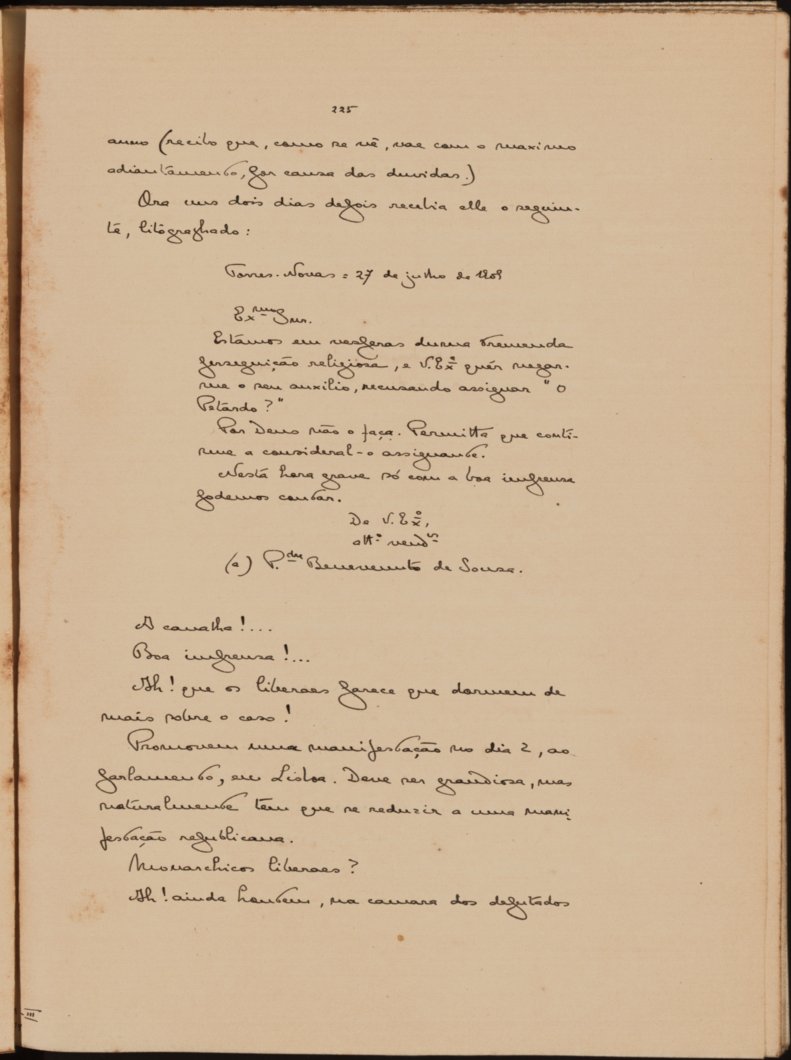 225
anno (recibo que, como se vê, vae com o maximo
adiantamento, por causa das duvidas.)
Ora uns dois dias depois recebia elle o seguin-
te, litógraphado:
Torres-Novas = 27 de julho de 1909
Exmo Snr.
Estâmos em vesperas duma tremenda
perseguição religiosa, e V. Exª quér negar-
me o seu auxilio, recusando assignar "O
Petàrdo?"
Por Deus não o faça. Permitta que conti-
nue a consideral-o assignante.
Nesta hora grave só com a boa imprensa
podemos contar.
De V. Exª,
attº vendor
(a) P.dre Benevenuto de Souza.
A canalha!...
Boa imprensa!...
Ah! que os liberaes parece que dormem de
mais sobre o caso!
Promovem uma manifestação no dia 2, ao
parlamento, em Lisboa. Deve ser grandiosa, mas
naturalmente tem que se reduzir a uma mani-
festação republicana.
Monarchicos liberaes?
Ah! ainda hontem, na camara dos deputados
III